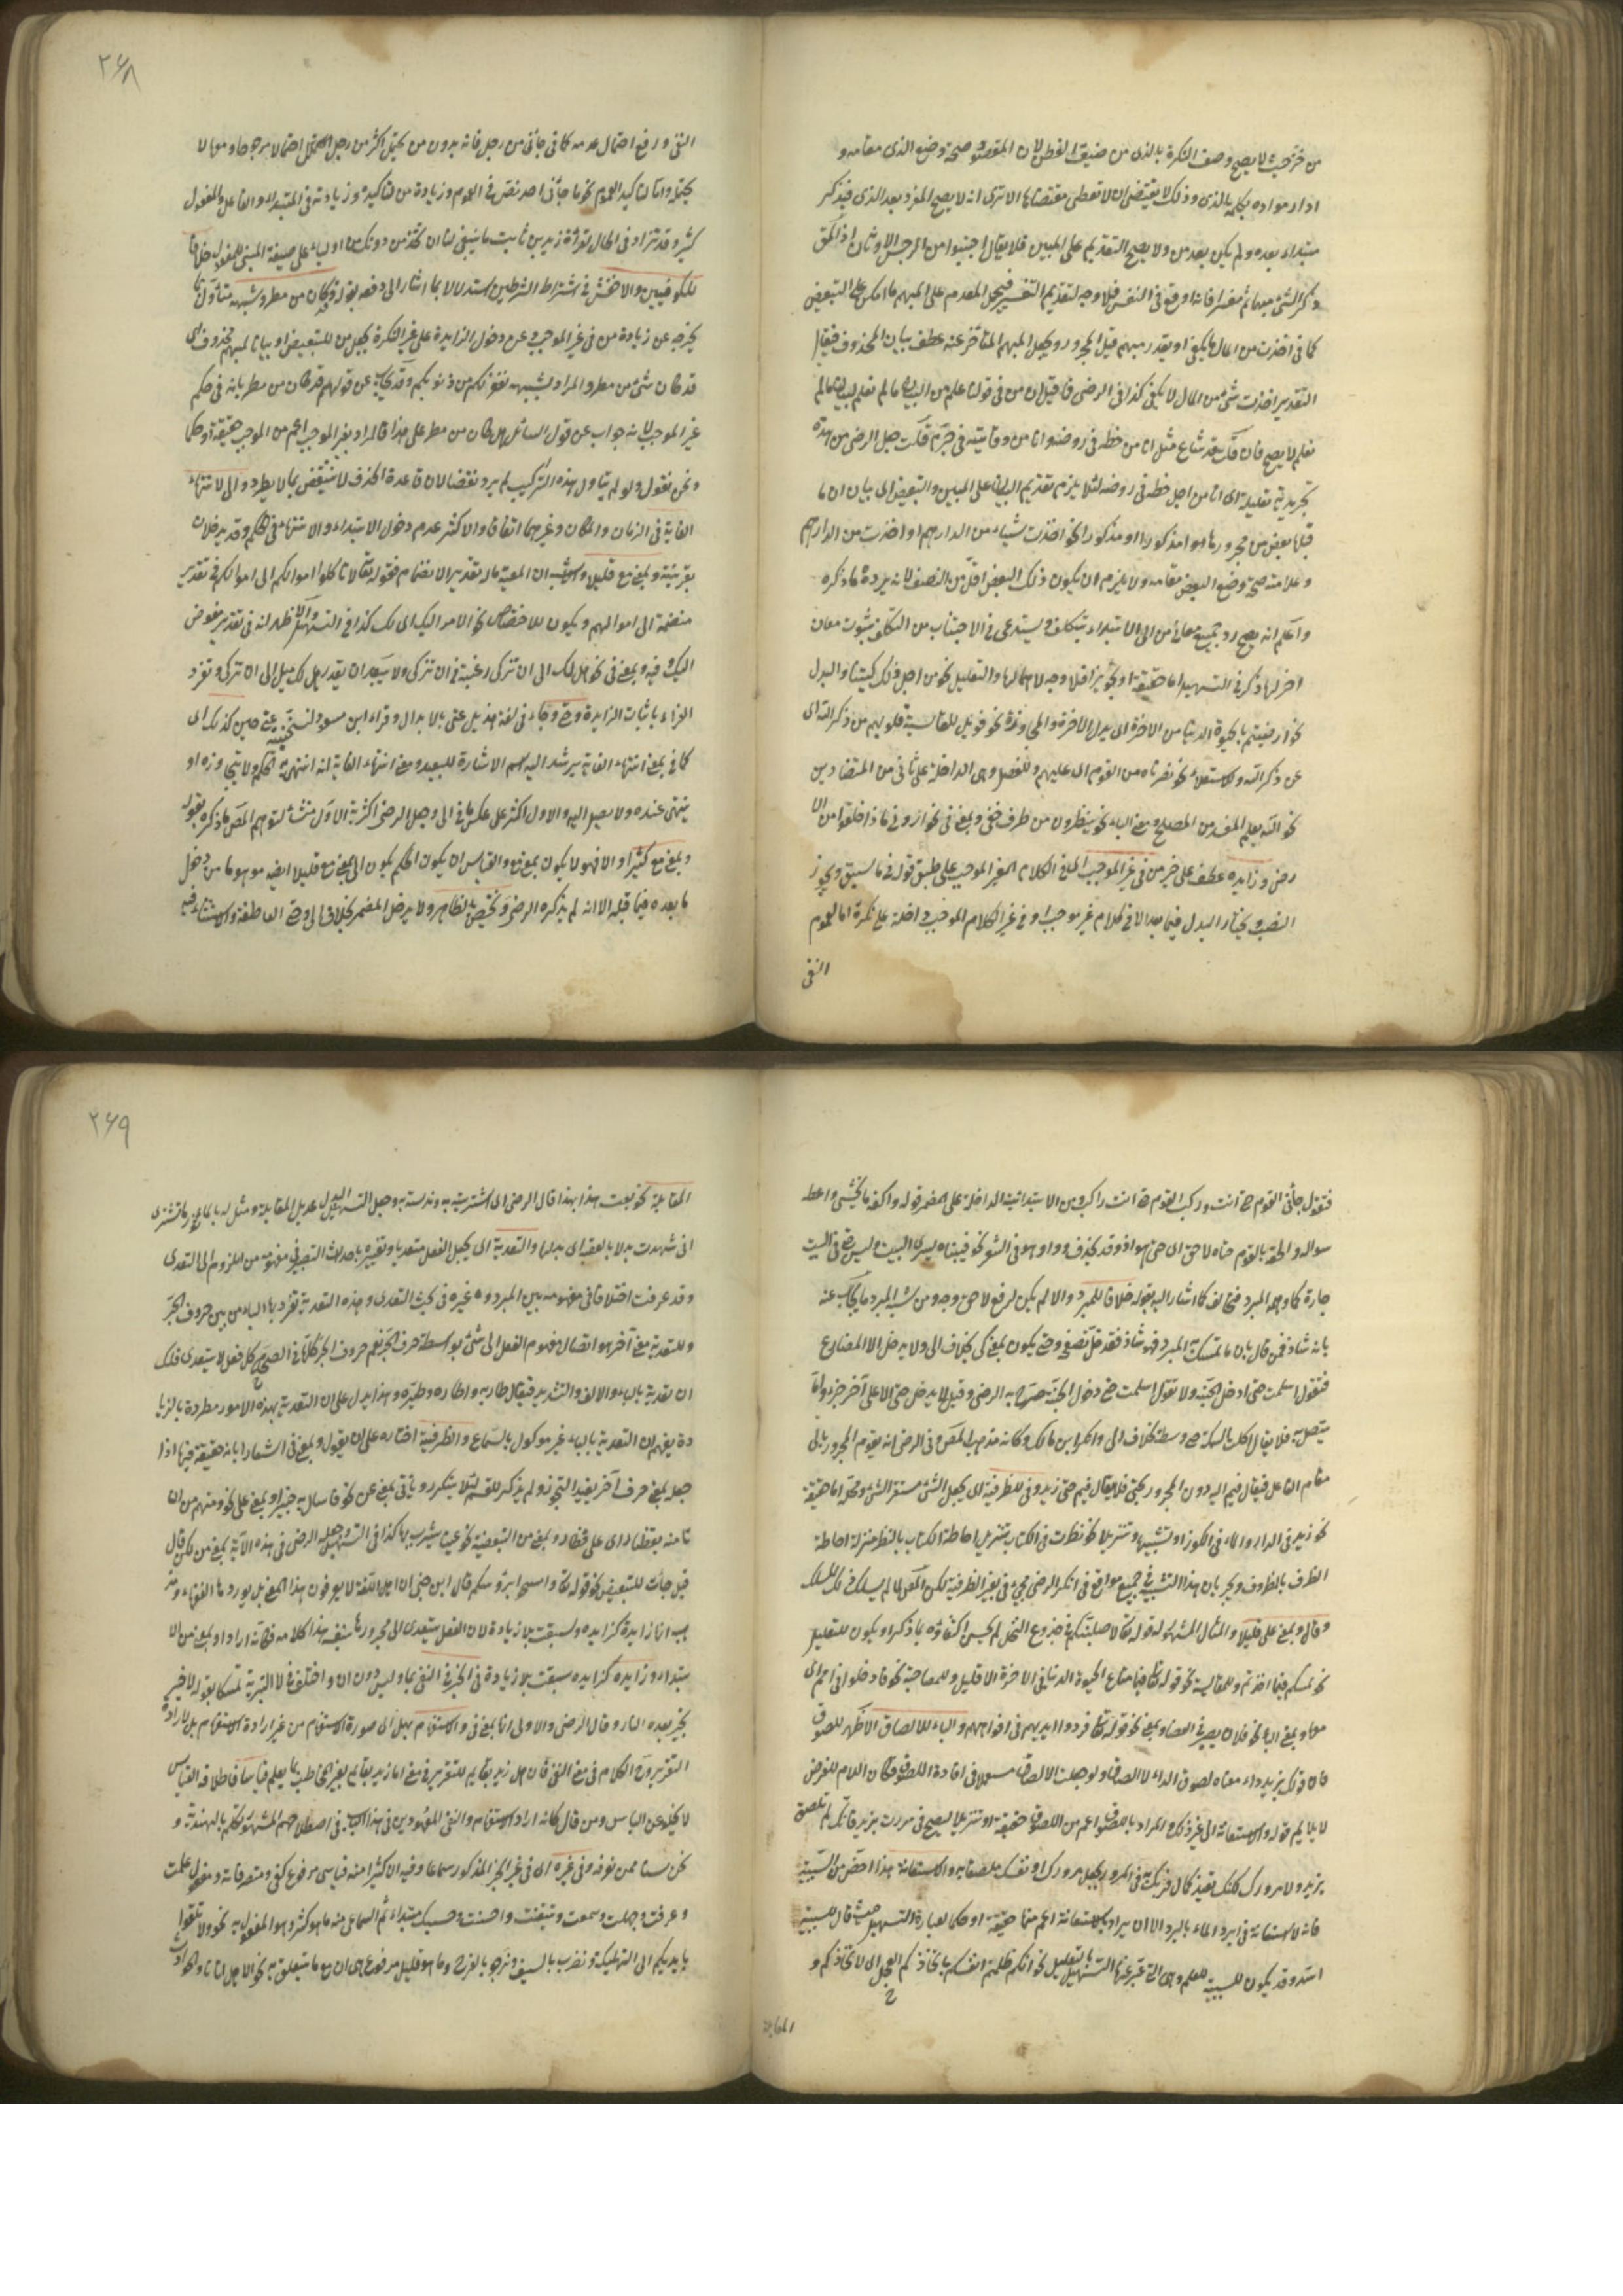 من خز حيث لا يصح وصف النكرة بالذي من ضيق اللفظ لان المقصود صحة وضع الذي مقامه و
مبتداء بعده ولم يكن بعد من ولا يصح التقديم على المبين فلا يقال اجتنبوا من الرجس الاوثان اذ الحق
ذكر الشئ مبهما ثم مفسرا فانه اوقع في النفس فلا وجه لتقديم التفسير فيجعل المقدم على المبهم ما امكن على التبعيض
كما في اخذت من المال ما يكفي او يقدر مبهم قبل المجرور ويجعل المبهم المتأخر عنه عطف بيان المحذوف فيقال
التقدير اخذت شئ من المال لا يكفي كذا في الرضى فما قيل ان من في قولنا علم من البيان ما لم نعلم لبيان ما لم
نعلم لا يصح فان قلت قد شاع مثل انا من خطه في روضة وانا من وفائيته في حرم قلت جعل الرضى من هذه
تجريدية تعليلية اى انا من اجل خطه في روضة لئلا يلزم تقديم البيان على المبين والتبعيض اى بيان ان ما
قبلها بعض من مجرورها اما مذكورا او مذكورا نحو اخذت شيئا من الدراهم او اخذت من الدراهم
وعلامته صحة وضع البعض مقامه ولا يلزم ان يكون ذلك البعض اقل من النصف لانه يرده ما ذكره
واعلم انه يصح رد جميع معانى من الى الابتداء بتكلف ويستدعى في الاجتناب من التكلف ثبوت معان
اخر لها ذكر في التسهيل اما حقيقة او تجوزا فلا وجه لاهمالها والتعليل نحو من اجل ذلك كتبنا والبدل
نحو ارضيتم بالحيوة الدنيا من الاخرة اى بدل الاخرة والمجاوزة نحو فويل للقاسية قلوبهم من ذكر الله اى
عن ذكر الله والاستعلاء نحو نصرناه من القوم اى عليهم وللفصل وهى الداخلة على ثانى من المتضادين
نحو الله يعلم المفسد من المصلح ومعنى الباء نحو ينظرون من طرف خفى وبمعنى في نحو اروني ماذا خلقوا من الا
رض وزايدة عطف على خبر من في غير الموجب اى في الكلام الغير الموجب على طبق قوله في ما سبق ويجوز
النصب ويختار البدل فيما بعد الا في كلام غير موجب او في غير الكلام الموجب داخلة على نكرة اما لعموم
النفى
٢٦٨
النفى ورفع احتمال عدمه كما في جائنى من رجل فانه بدون من يحتمل اكثر من رجل احتمالا مرجوحا ومعها لا
يحتمله واما لتاكيد العموم نحو ما جائنى احد نص في العموم وزيادة من لتاكيده وزيادته في المبتداء والفاعل والمفعول
كثير وقد تزاد في الحال لقرائة زيد بن ثابت ما ينبغى لنا ان نتخذ من دونك من اولياء على صيغة المبنى للمفعول خلافا
للكوفيين والاخفش في اشتراط الشرطين واستدلالا بما اشار الى دفعه بقوله وقد كان من مطر وشبهه متأول بما
يخرجه عن زيادة من في غير الموجب وعن دخول الزايدة على غير النكرة بجعل من للتبعيض او بيانا لمبهم محذوف اى
قد كان شئ من مطر والمراد بشبهه يغفر لكم من ذنوبكم وقد يجاب عن قولهم قد كان من مطر بانه في حكم
غير الموجب لانه جواب عن قول السائل هل كان من مطر على هذا فالمراد بغير الموجب اعم من الموجب حقيقة او حكما
ونحن نقول ولو لم يتاول هذه التراكيب لم يرد نقضا لان قاعدة الحذف لا تنتقض بما لا يطرد والى لانتهاء
الغاية في الزمان والمكان وغيرهما اتفاقا والاكثر عدم دخول الابتداء والانتهاء في الحكم وقد يدخلان
بقرينة وبمعنى مع قليلا والاشبه ان المعية مآل تقدير الانضمام فقوله تعالى لا تاكلوا اموالهم الى اموالكم في تقدير
منضمة الى اموالهم ويكون للاختصاص نحو الامر اليك اى لك كذا في التسهيل والاظهر انه في تقدير مفوض
اليك وفيه وبمعنى في نحو هل لك الى ان تزكى اى رغبة في ان تزكى ولا يبعد ان يقدر هل لك ميل الى ان تزكى وتفرد
الفراء باثبات الزايدة وحتى وجاء في لغة هذيل عتى بالابدال وقراء ابن مسعود ليسجننه عتى حين كذلك اى
كما في بمعنى انتهاء الغاية يرشد اليه اسم الاشارة للبعيد ومعنى انتهاء الغاية انه انتهى به الحكم ولا يتجاوزه او
ينتهى عنده ولا يصل اليه والاول اكثر على عكس ما في الى وجعل الرضى اكثرية الاول منشأ لتوهم المص ما ذكره بقوله
وبمعنى مع كثيرا والا فهو لا يكون بمعنى مع والقياس ان يكون الحكم بكون الى بمعنى مع قليلا ايضه موهوما من دخول
ما بعده فيما قبله الا انه لم يذكره الرضى وتختص بالظاهر ولا يدخل المضمر بخلاف الى وحتى العاطفة والاستينافية
فتقول جائنى القوم حتى انت وركب القوم حتى انت راكب من الابتدائية الداخلة على المضمر قوله واكفه ما يخشى واعطه
سواله والحقه بالقوم حتاه لاحق اى حتى هو اذ وقد يحذف واو هو في الشعر نحو فبيناه يسرى البيت وليس حتى في البيت
جارة كما وهمه المبرد فخالف كما اشار اليه بقوله خلافا للمبرد والا لم يكن لرفع لاحق وجه ومن شبه المبرد ما يجاب عنه
بانه شاذ فمن قال بان ما تمسك به المبرد فهو شاذ فقد قل تصفحه وحتى يكون بمعنى كى بخلاف الى ولا يدخل الا المضارع
فتقول اسلمت حتى ادخل الجنة ولا تقول اسلمت حتى دخول الجنة صرح به الرضى وقيل لا يدخل حتى الا على آخر جزء او ما
يتصل به فلا يقال اكل السمكة حتى وسطه بخلاف الى وانكر ابن مالك وكانه مذهب المص وفي الرضى انه يقوم المجرور بالى
مقام الفاعل فيقال قيم اليه دون المجرور بحتى فلا يقال قيم حتى زيد وفي للظرفية اى يجعل الشئ مستقر الشئ ومحله اما حقيقة
نحو زيد في الدار والماء في الكوز او تشبيها وتنزيلا نحو نظرت في الكتاب بتنزيل احاطة الكتاب بالنظر منزلة احاطة
الظرف بالمظروف ويجرى بان هذا التشبيه في جميع مواقع في انكر الرضى مجئ في بغير الظرفية لكن المص لما لم يسلك في ذلك المسلك
وقال وبمعنى على قليلا والمثال المشهور له قوله تعالى لاصلبنكم في جذوع النخل لم يحسن اكتفاؤه بما ذكر او يكون للتعليل
نحو لمسكم فيما اخذتم وللمقايسة نحو قوله تعالى فما متاع الحيوة الدنيا في الاخرة الا قليل وللمصاحبة نحو فادخلوا في امم اى
معها وبمعنى الباء نحو فلان بصير في العصا وبمعنى نحو قوله تعالى فردوا ايديهم في افواههم والباء للالصاق الاظهر للصوق
فان قولك بزيد داء معناه لصوق الداء لا الصاقه ولو جعلت الالصاق مستعملا في افادة اللصوق فكان اللام للغرض
لا يلايم قوله والاستعانة الى غير ذلك والمراد باللصوق اعم من اللصوق حقيقة او تنزيلا ليصح في مررت بزيد فانك لم تلصق
بزيد ولا مرورك لكنك تفيد كمال قربك به في المرور بجعل مرورك او نفسك ملصقا به والاستعانة هذا اخص من السببية
فانه لا استعانة في ابرد الماء بالبرد الا ان يراد بالاستعانة اعم منها حقيقة او حكما لعبارة التسهيل حيث قال للسببية
اشد وقد يكون للسببية للعلم وهى التى عبر عنها التسهيل بالتعليل نحو انكم ظلمتم انفسكم باتخاذكم العجل اى لاتخاذكم و
المقابلة
٢٦٩
المقابلة نحو بعت هذا بهذا قال الرضى اى اشتريت به وبدلته به وجعل التسهيل البدل عديل المقابلة ومثل له
انى شهدت بدلا بالعقبة اى بدلها والتعدية اى يجعل الفعل متعديا وتغييره باحداث التصيير في مفهومه من اللزوم الى التعدى
وقد عرفت اختلافا في مفهومه بين المبرد وغيره في بحث التعدى وهذه التعدية تفرد بها الباء من بين حروف الجر
وللتعدية معنى آخر هو اتصال مفهوم الفعل الى شئ بواسطة حرف الجر فيعم حروف الجر كلها في الصحيح كل فعل لا يتعدى فلك
ان تعديه بالباء والالف والتشديد فيقال طار به واطاره وطيره وهذا يدل على ان التعدية بهذه الامور مطردة
يفهم ان التعدية بالباء غير موكول بالسماع والظرفية اختاره على ان يقول وبمعنى في اشعارا بانه حقيقة فيها اذا
جعله بمعنى حرف آخر يفيد التجوز ولم يذكر للقسم لئلا يتكرر وياتى بمعنى عن نحو فاسال به خبيرا وبمعنى على نحو ومنهم من ان
تامنه بقنطار اى على قنطار وبمعنى من التبعيضية نحو عينا يشرب بها كذا في التسهيل وجعله الرضى في هذه الآية بمعنى من لكن قال
قيل جائت للتبعيض نحو قوله تعالى وامسحوا برؤسكم قال ابن جنى ان اهل اللغة لا يعرفون هذا المعنى بل يورده الفقهاء ومذ
هب انها زايدة كزايدة وليست بلا زيادة لان الفعل يتعدى الى مجرورها بنفسه هذا كلامه فكانه اراد او بمعنى من الا
بتداء وزايدة كزايدة سبقت بلا زيادة في الخبر في النفى بما وليس دون ان واختلف في لا التبرية تمسكا بقوله لا خير
بخير بعده النار وقال الرضى والاولى انها بمعنى في والاستفهام بهل اى صورة الاستفهام من غير ارادة الاستفهام بل لارادة
التقرير والكلام في معنى النفى فان هل زيد بقايم للتقرير في معنى ما زيد بقايم بغير المخاطب بما يعلم قياسا فاطلاقه القياس
لا يخلو عن الباس ومن قال كانه اراد الاستفهام والنفى المعهودين في هذا الباب في اصطلاحهم المشهور تكلم بالهندية و
نحن لسنا ممن نعرفه وفي غيره اى في غير الخبر المذكور سماعا وفيه الاكثر امنه قياسى مرفوع كفى ومتصرفاته ومفعول علمت
وعرفت وجهلت وسمعت وتيقنت واحسنت وحسبك مبتداء ثم السماعى منه ما هو كثير وهو المفعول به نحو ولا تلقوا
بايديكم الى التهلكة ونضرب بالسيف ونرجو بالفرج وما هو قليل مرفوع هى ان مع ما يتعلق به نحو الا هل اتاها والحوادث